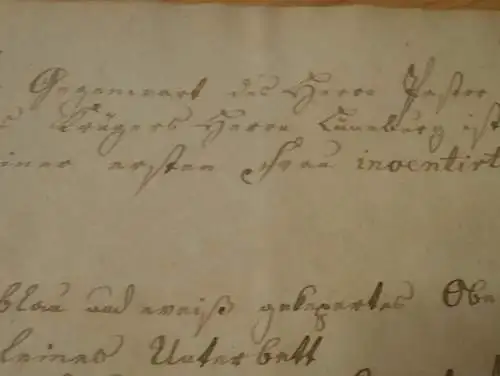 Gegenwart des Herrn Pastor
s Krügers Herrn Luneburg ist
einer ersten Frau inventirt
blau und weiß gekepertes Obe
kleines Unterbett